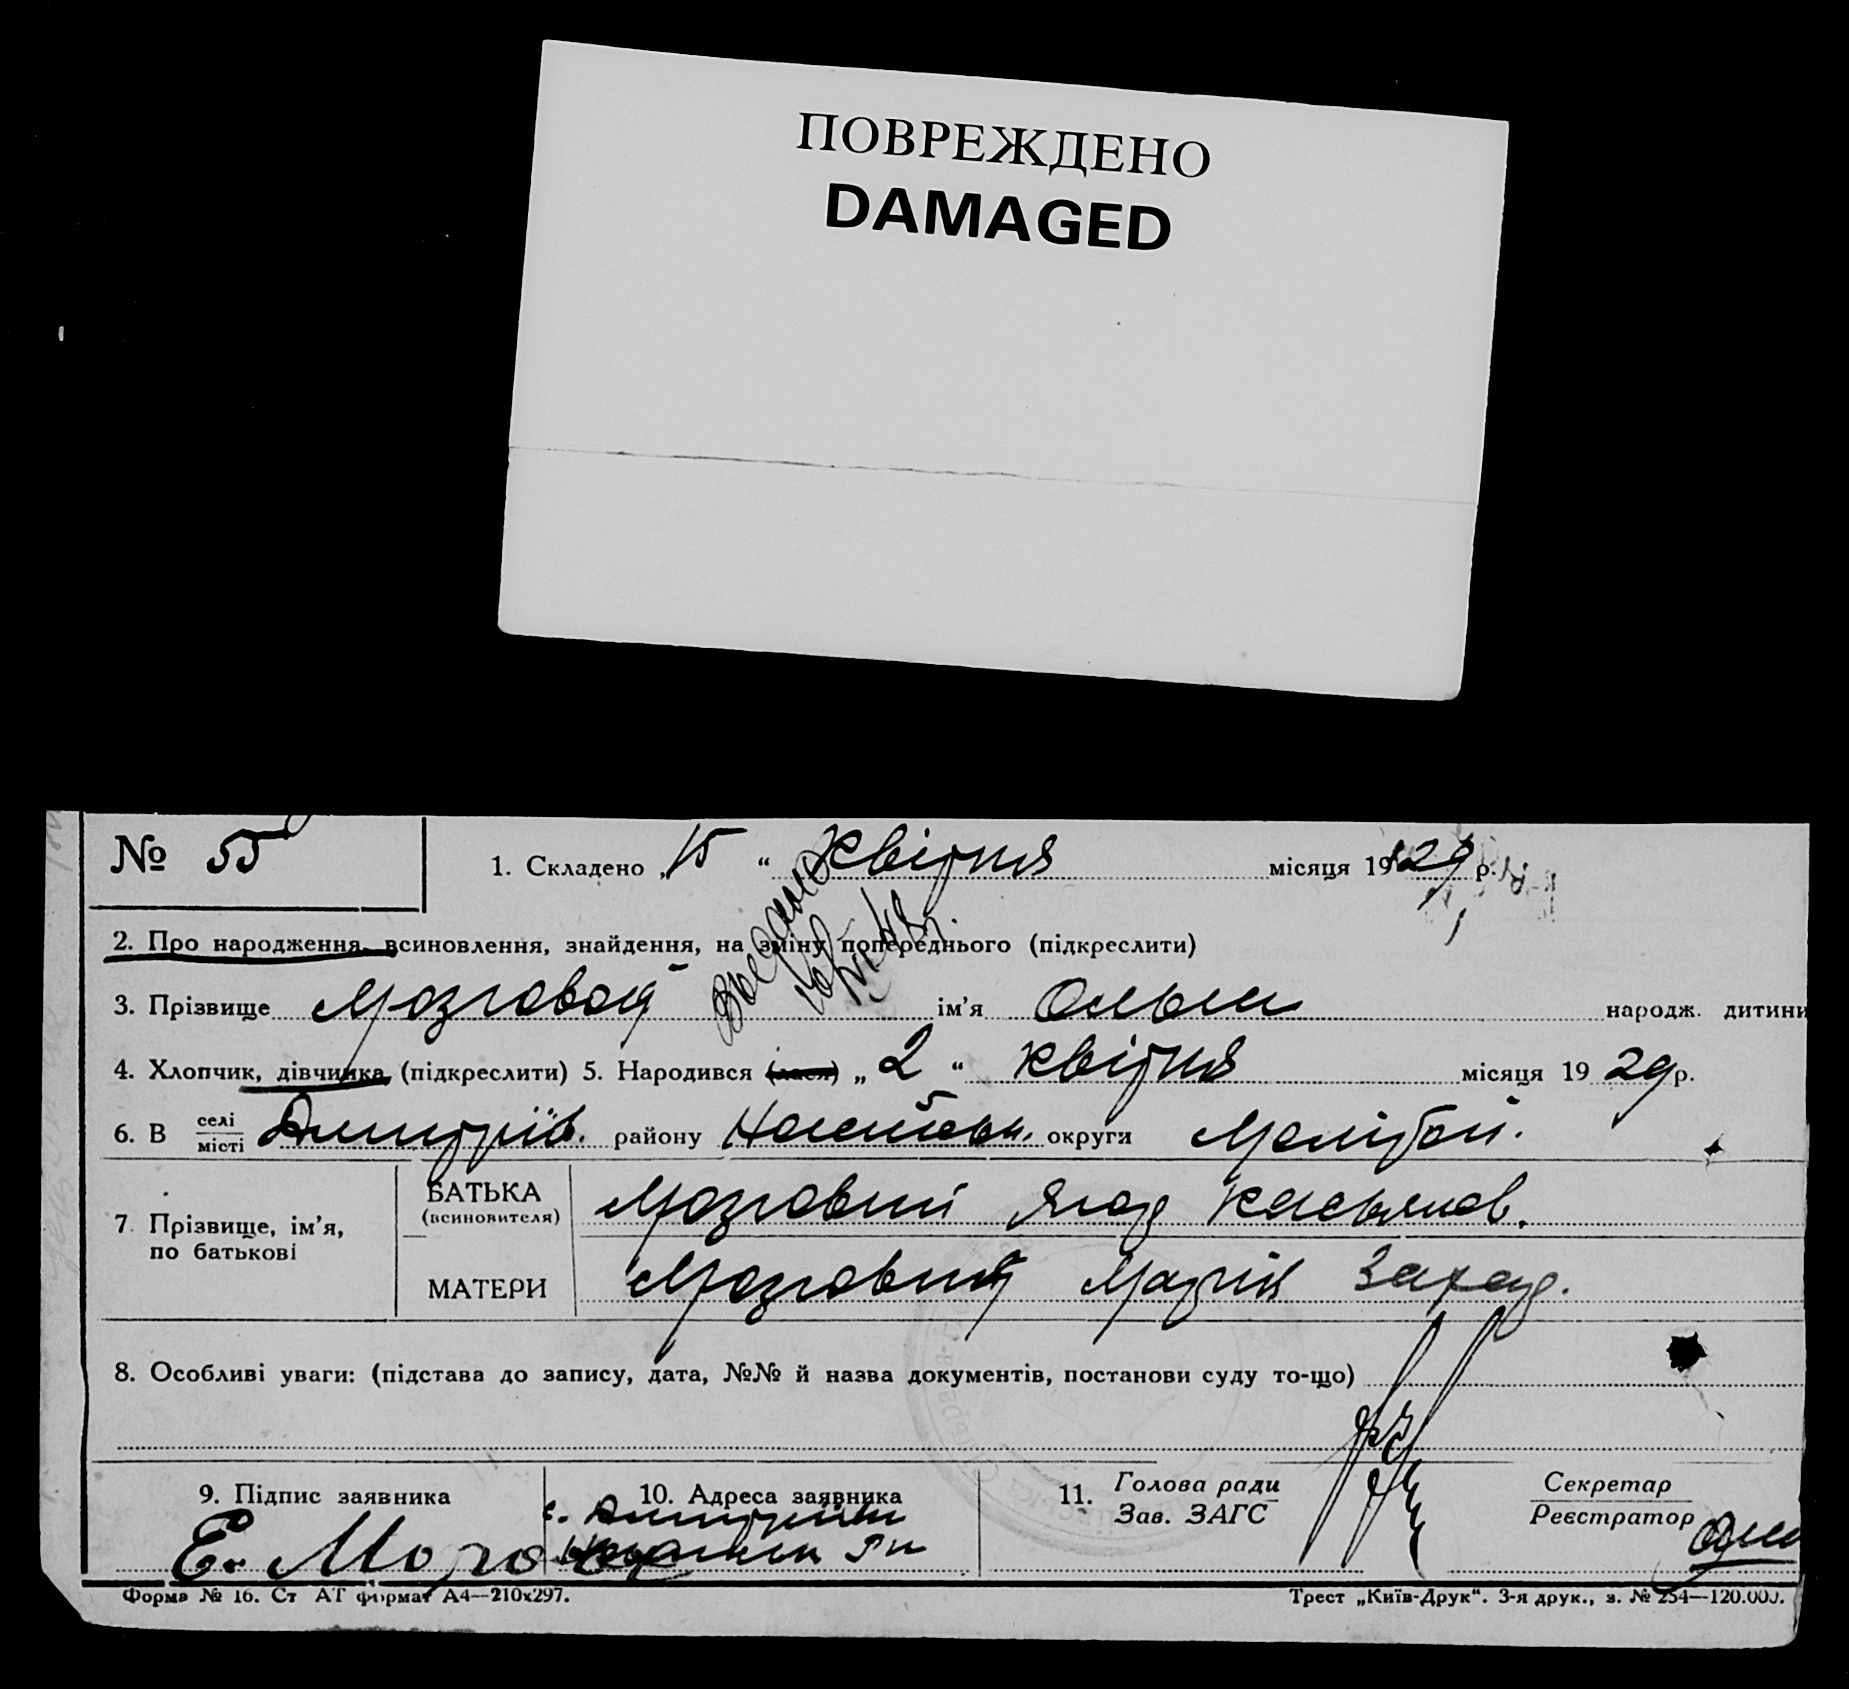 ПОВРЕЖДЕНО
DAMAGED
№ 55
1. Складено „ 15 “ квітня місяця 1929 р.
2. Про народження, всиновлення, знайдення, на зміну попереднього (підкреслити)
3. Прізвище Мозговой ім’я Ольги народж. дитини
4. Хлопчик, дівчинка (підкреслити) 5. Народився (лася) „ 2 “ квітня місяця 19 29 р.
6. В селі місті Дмитрів. району округи
7. Прізвище, ім’я, по батькові
БАТЬКА (всиновителя) Мозговий Касьянов.
МАТЕРИ Мозговий Марія Захар.
8. Особливі уваги: (підстава до запису, дата, №№ й назва документів, постанови суду то-що)
9. Підпис заявника
10. Адреса заявника
11. Голова ради Зав. ЗАГС
Секретар Реєстратор
с.
Е.
Форма № 16. Ст АТ формат А4—210х297.
Трест „Київ-Друк“. 3-я друк., з. № 254—120.000.